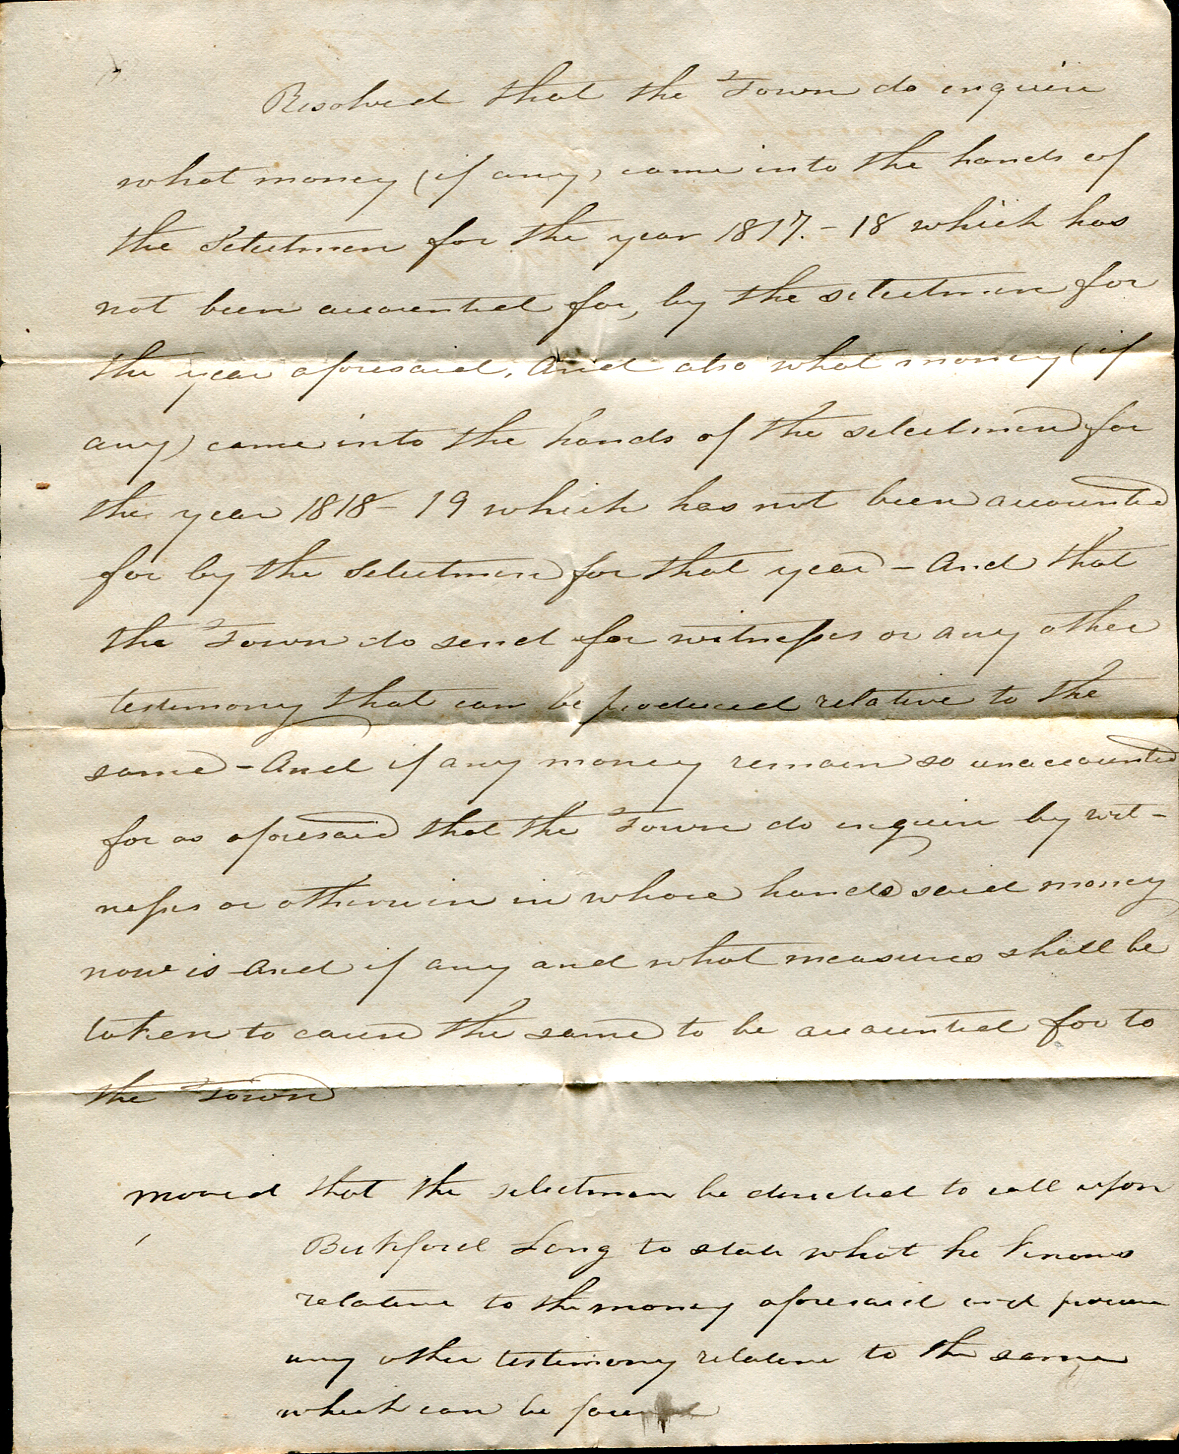 Resolved that the Town do enquire
what money (if any) came into the hands of
the Selectmen for the year 1817.-18 which has
not been accounted for, by the selectmen for
the year aforesaid. And also what money (if
any) came into the hands of the selectmen for
the year 1818-19 which has not been accounted
for by the Selectmen for that year - And that
the Town do send for witnesses or any other
testimony that can be produced relative to the
same - And if any money remain so unaccounted
for as aforesaid that the Town do enquire by wit-
nesses or otherwise in whose hands said money
now is And if any and what measures shall be
taken to cause the same to be accounted for to
the Town
moved that the selectmen be directed to call upon
Bickford Lang to state what he knows
relative to the money aforesaid and procure
any other testimony relative to the same
which can be found